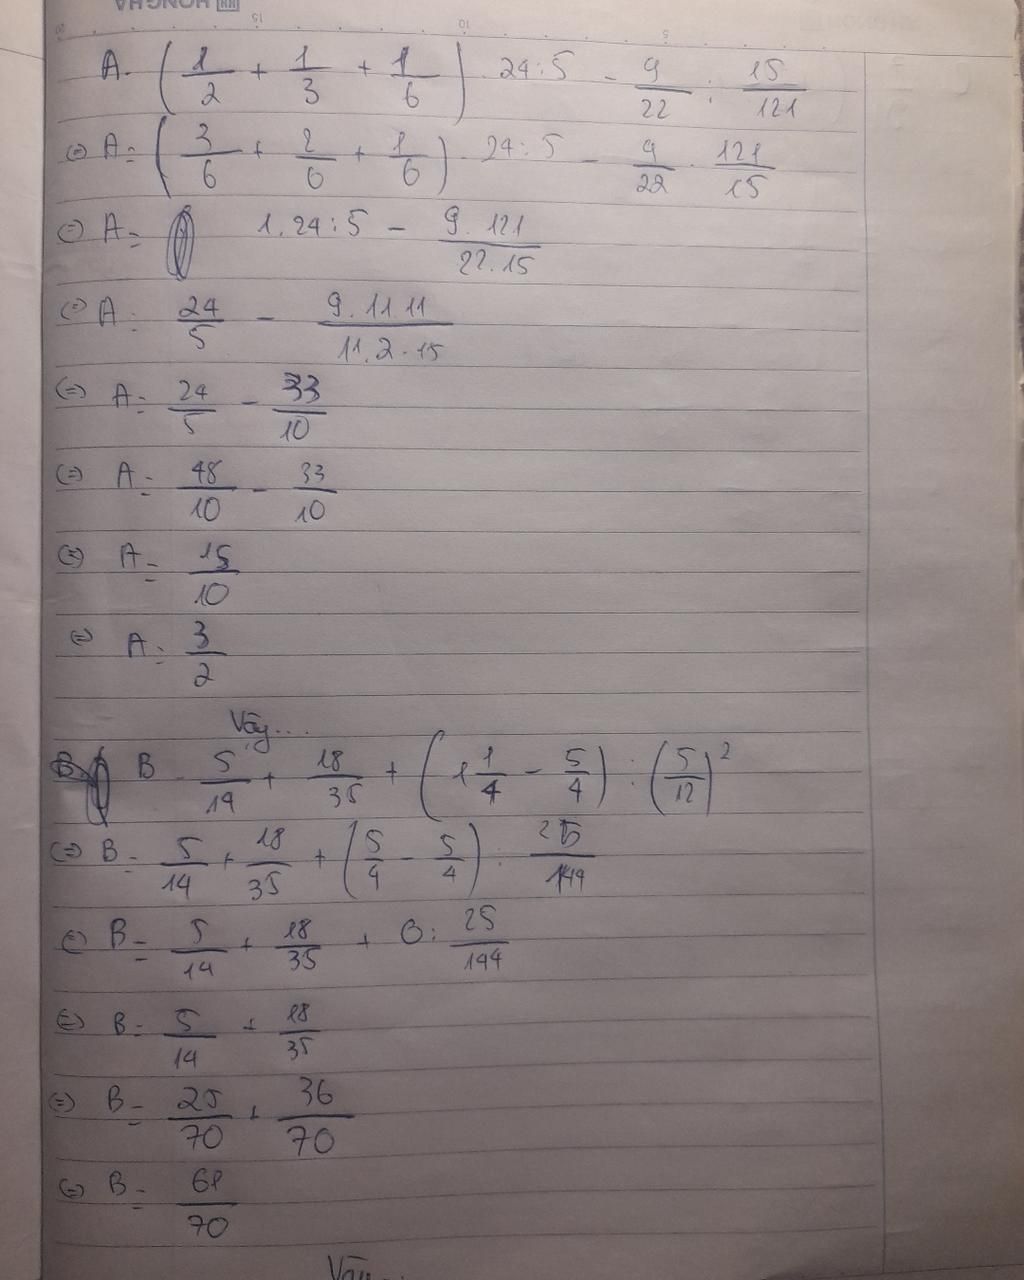 HONG HA
15 10 5
A = (1/2 + 1/3 + 1/6) . 24 : 5 - 9/22 : 15/121
(=) A = (3/6 + 2/6 + 1/6) . 24 : 5 - 9/22 . 121/15
(=) A = 1. 24 : 5 - 9. 121/22. 15
(=) A = 24/5 - 9. 11. 11/11. 2. 15
(=) A = 24/5 - 33/10
(=) A = 48/10 - 33/10
(=) A = 15/10
(=) A = 3/2
Vậy...
B = 5/14 + 18/35 + (1 1/4 - 5/4) : (5/12)²
(=) B = 5/14 + 18/35 + (5/4 - 5/4) : 25/144
(=) B = 5/14 + 18/35 + 0 : 25/144
(=) B = 5/14 + 18/35
(=) B = 25/70 + 36/70
(=) B = 61/70
Vậy...